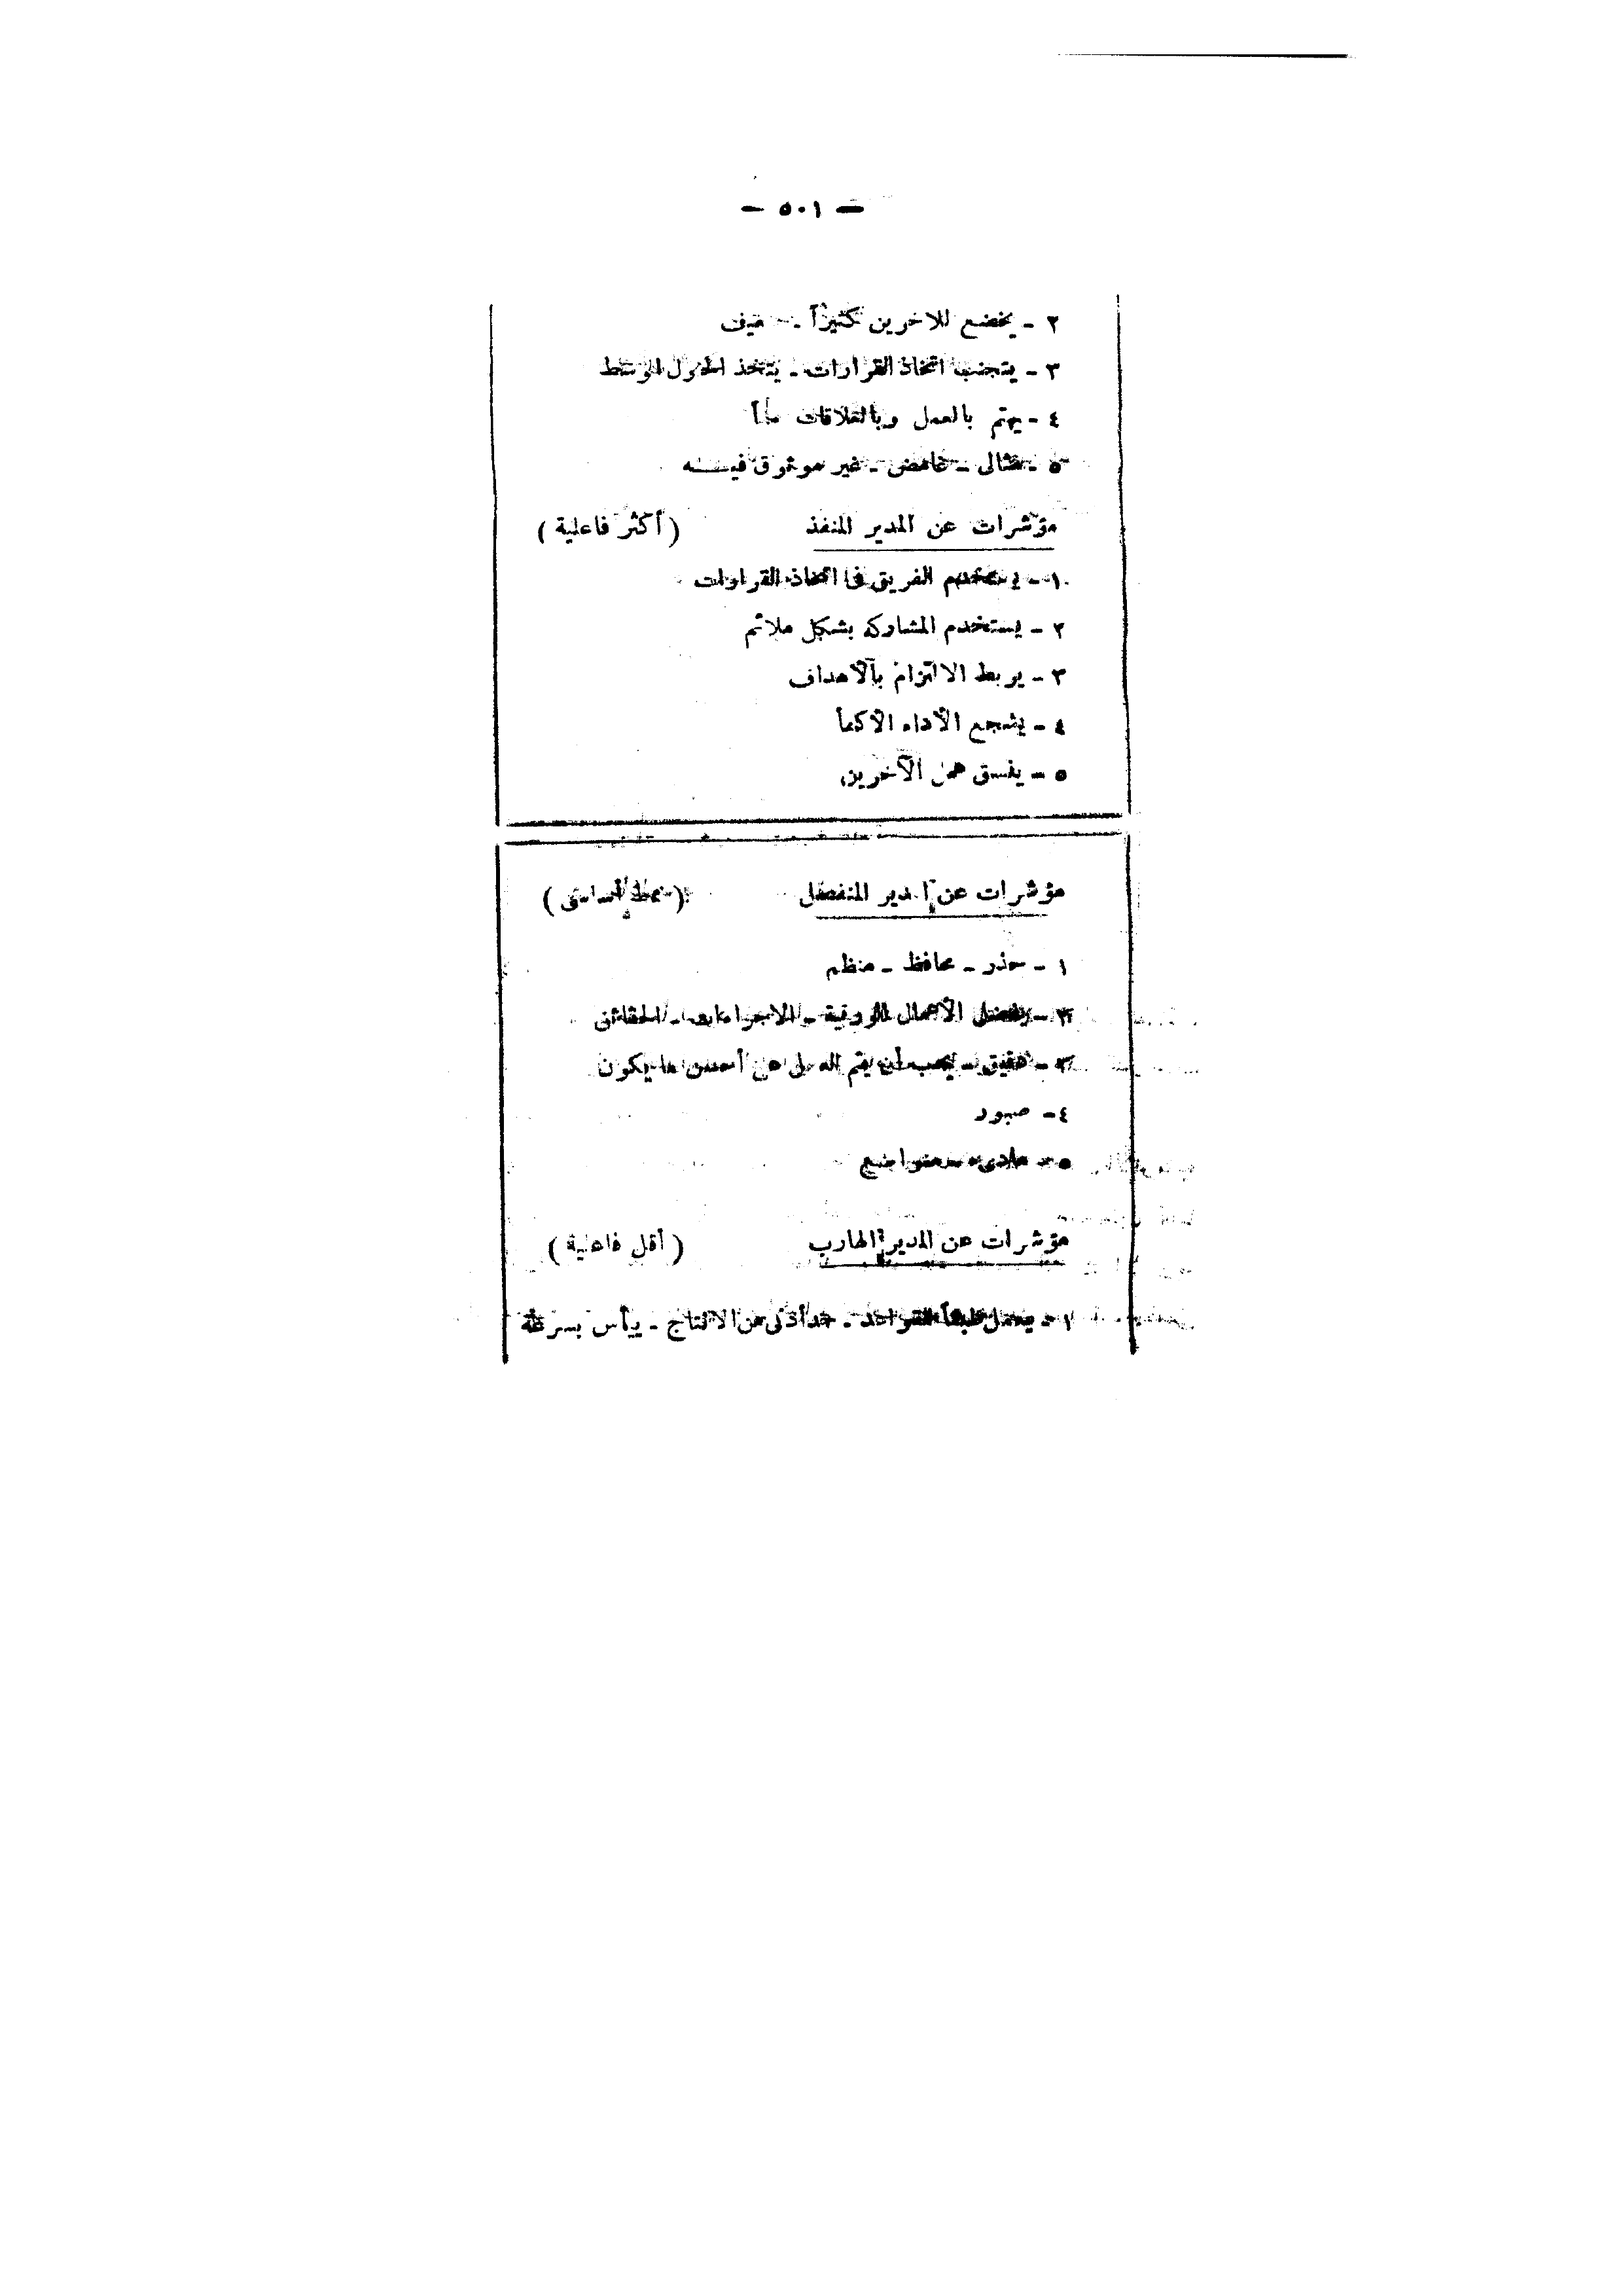 — ٥٠١ —
٢ - يخضع للاخرين كثيراً -
٣ - يتجنب اتخاذ القرارات - يتخذ الحلول الوسط
٤ - يهتم بالعمل وبالعلاقات معاً
٥ - مثالى - غامض - غير موثوق فيه
مؤشرات عن المدير المنفذ ( أكثر فاعلية )
١ - يستخدم الفريق فى اتخاذ القرارات
٢ - يستخدم المشاركة بشكل ملائم
٣ - يربط الالتزام بالأهداف
٤ - يشجع الأداء الأكفأ
٥ - ينسق عمل الآخرين
مؤشرات عن المدير المنفصل ( نمط أساسى )
١ - حذر - محافظ - منظم
٢ - يفضل الأعمال الورقية - الاجراءات - الحقائق
٣ - دقيق - يحب أن يتم العمل على أحسن ما يكون
٤ - صبور
٥ - هادىء - متواضع
مؤشرات عن المدير الهارب ( أقل فاعلية )
١ - يعمل طبقاً للقواعد - حد أدنى من الانتاج - ييأس بسرعة